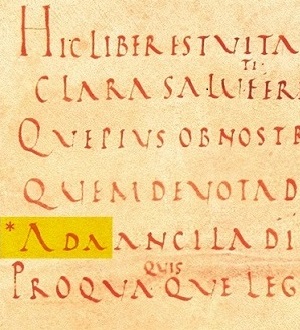 HIC LIBER EST VITA
TI
CLARA SALUFER
QUE PIUS OB NOSTR
QUEM DEVOTA D
*ADA ANCILA DI
QUIS
PRO QUA QUE LEG